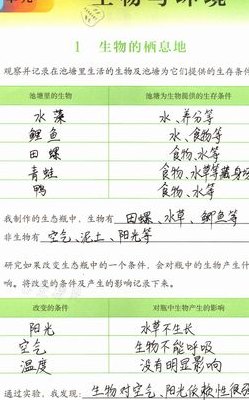 生物与环境
1 生物的栖息地
观察并记录在池塘里生活的生物及池塘为它们提供的生存条件
池塘里的生物 池塘为生物提供的生存条件
水藻 水、养分等
鲤鱼 水、食物等
田螺 食物、水等
青蛙 食物、水等藏身场
鸭 食物、水等
我制作的生态瓶中，生物有 田螺、水草、鲫鱼等
非生物有 空气、泥土、阳光等
研究如果改变生态瓶中的一个条件，会对瓶中的生物产生什
响。将改变的条件及产生的影响记录下来。
改变的条件 对瓶中生物产生的影响
阳光 水草不生长
空气 生物不能呼吸
温度 没有明显影响
通过实验，我发现：生物对空气、阳光依赖性很强